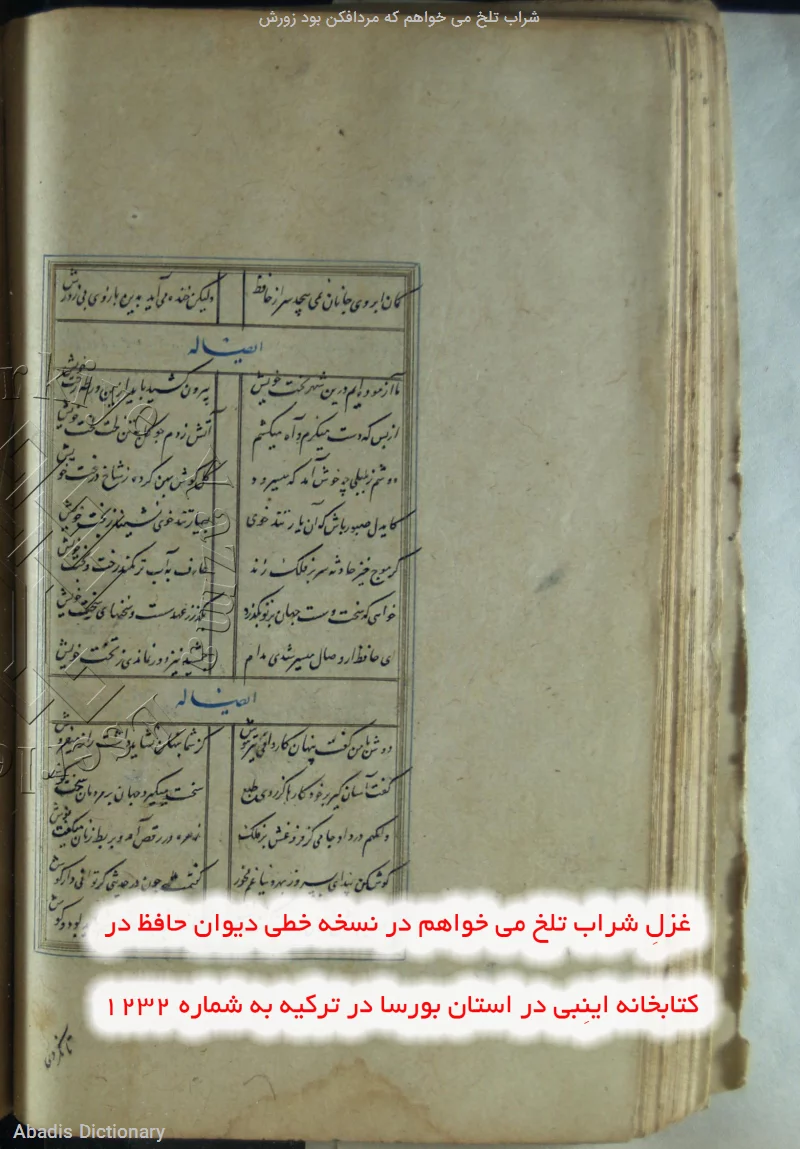 شراب تلخ می خواهم که مردافکن بود زورش
کمان ابروی جانان نمی پیچد سر از حافظ ولیکن خنده می آید بدین بازوی بی زورش
ایضاله
ما آزموده ایم درین شهر بخت خویش بیرون کشید باید ازین ورطه رخت خویش
از بس که دست میگزم و آه میکشم آتش زدم چو گل بتن لخت لخت خویش
دوشم ز بلبلی چه خوش آمد که میسرود گل گوش پهن کرده ز شاخ درخت خویش
کای دل صبور باش که آن یار تند خوی بسیار تند خوی نشیند ز بخت خویش
گر موج خیز حادثه سر بر فلک زند عارف به آب تر نکند رخت و پخت خویش
خواهی که سخت و سست جهان بر تو بگذرد بگذر ز عهد سست و سخنهای سخت خویش
ای حافظ ار وصال میسر شدی مدام جمشید نیز دور نماندی ز تخت خویش
ایضاله
دوش با من گفت پنهان کاردانی تیزهوش کز شما پنهان نشاید داشت راز میفروش
گفت آسان گیر بر خود کارها کز روی طبع سخت میگیرد جهان بر مردمان سخت کوش
وانگهم در داد جامی کز فروغش بر فلک زهره در رقص آمد و بربط زنان میگفت نوش
گوش کن پند ای پسر وز بهر دنیا غم مخور گفتمت چون در حدیثی گر توانی دار گوش
غزلِ شراب تلخ می خواهم در نسخه خطی دیوان حافظ در
کتابخانه اینِبی در استان بورسا در ترکیه به شماره ۱۲۳۲
تا نگردی
Abadis Dictionary